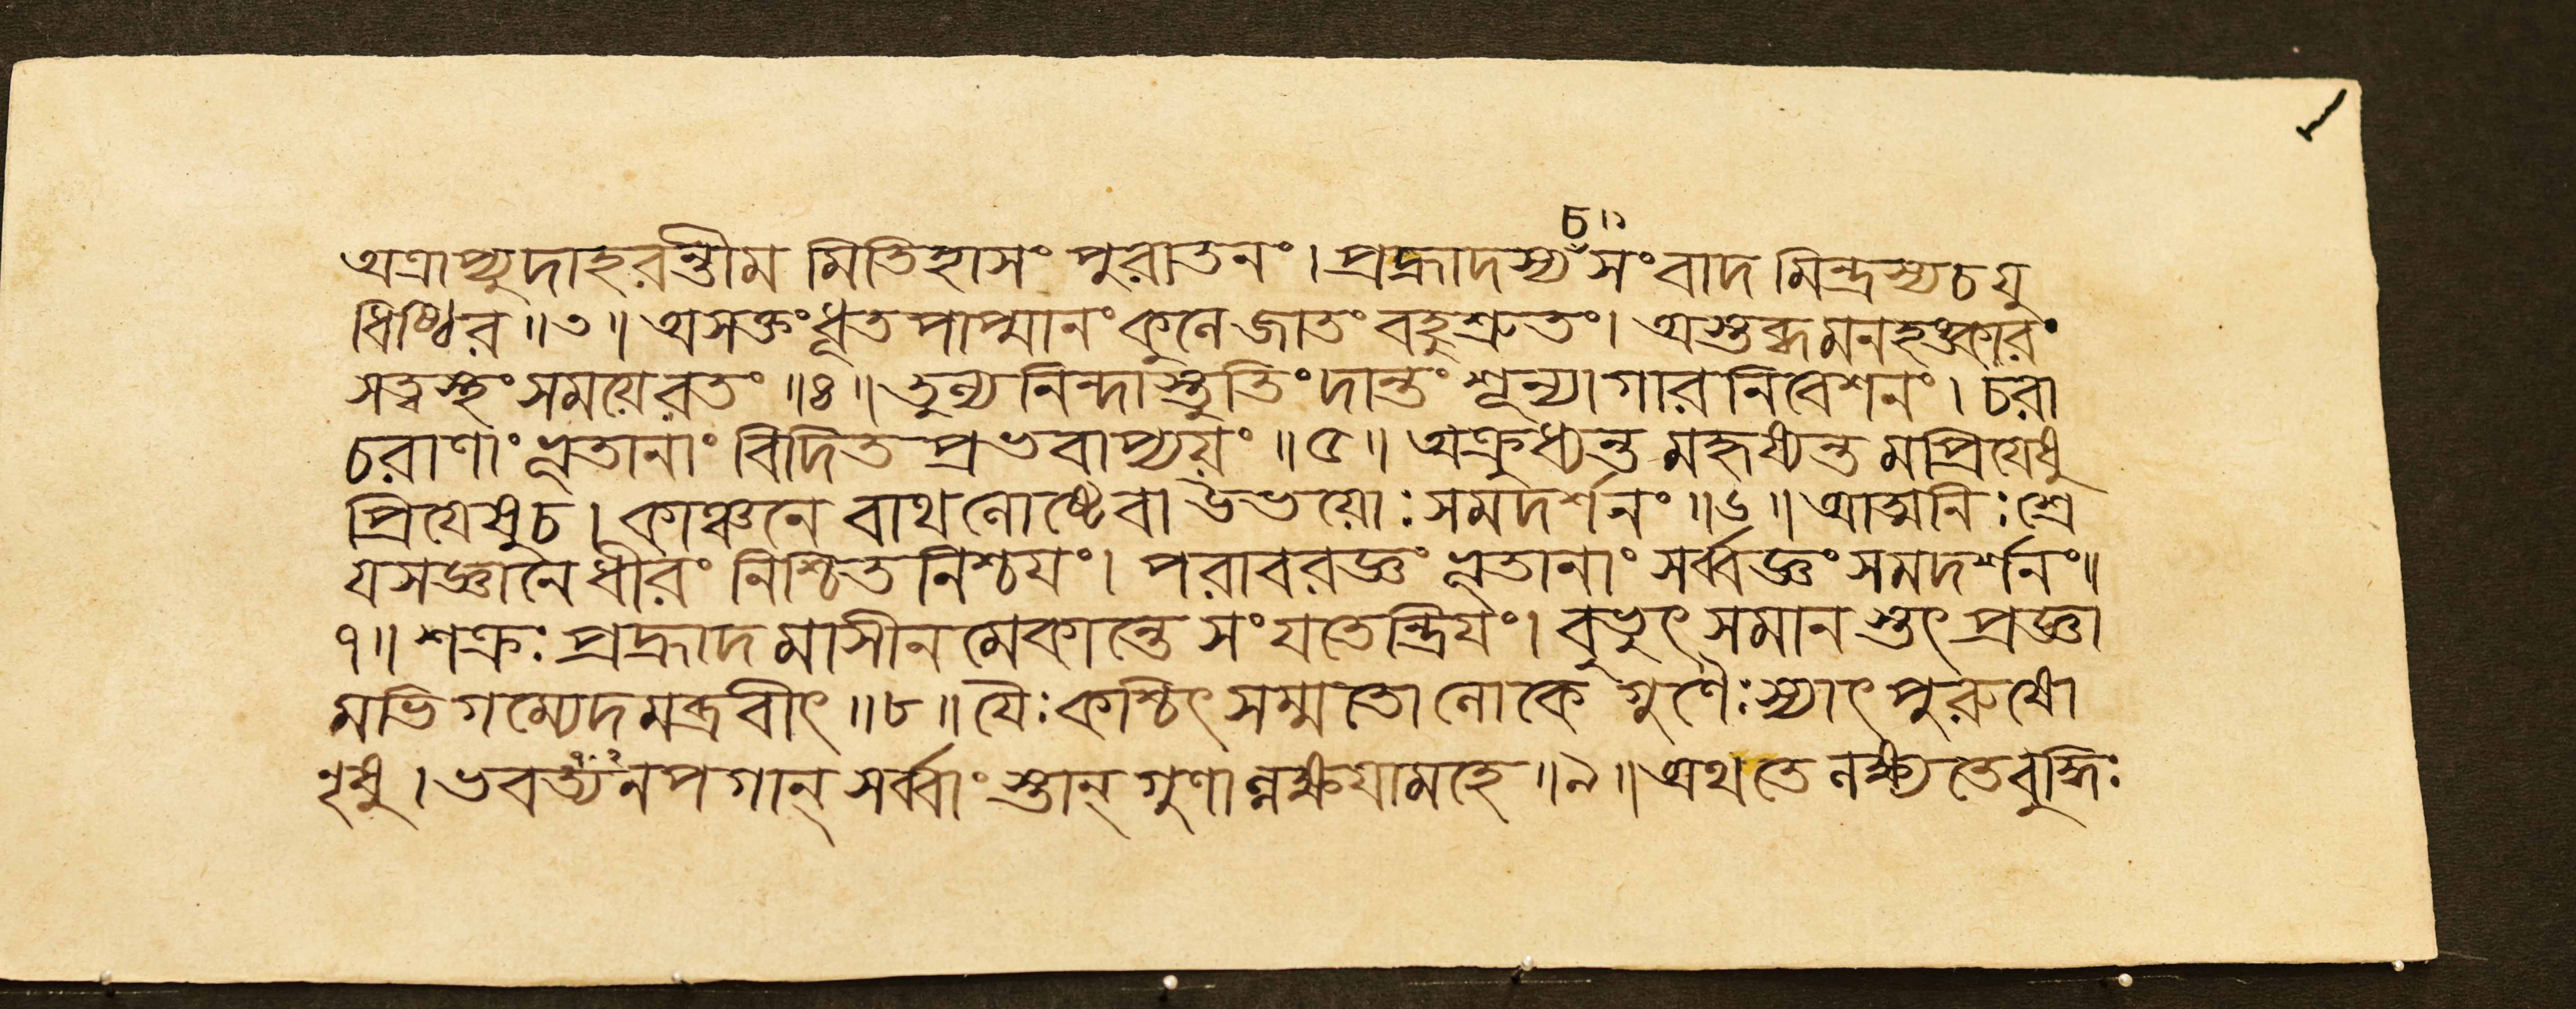 চ॥
অত্রাপ্যুদাহরন্তীম মিতিহাসং পুরাতনং। প্রহ্লাদস্য সংবাদ মিন্দ্রস্য চ যু
ধিষ্ঠির॥৩॥ অসক্তং ধূত পাপ্মানং কুলে জাতং বহুশ্রুতং। অস্তব্ধমনহঙ্কারং
সত্ত্বস্থং সময়েরতং॥৪॥ তুল্য নিন্দাস্তুতিং দান্তং শূন্যাগার নিবেশনং। চরা
চরাণাং ভূতানাং বিদিত প্রভবাপ্যয়ং॥৫॥ অক্রুধ্যন্ত মহৃষ্যন্ত মপ্রিয়েষু
প্রিয়েষু চ। কাঞ্চনে বাথ লোষ্টে বা উভয়োঃ সমদর্শনং॥৬॥ আত্মনিঃশ্রে
য়সজ্ঞানে ধীরং নিশ্চিত নিশ্চয়ং। পরাবরজ্ঞং ভূতানাং সর্ব্বজ্ঞং সমদর্শনং॥
৭॥ শক্রঃ প্রহ্লাদ মাসীন মেকান্তে সংযতেন্দ্রিয়ং। বুভুৎসমানস্তৎ প্রজ্ঞা
মভিগম্যেদমব্রবীৎ॥৮॥ যৈঃ কশ্চিৎ সম্মতো লোকে গুণৈঃ স্যাৎ পুরুষো
নৃষু। ভবত্যনপগান্ সর্ব্বাংস্তান্ গুণান্লক্ষয়ামহে॥৯॥ অথ তে লক্ষ্যতে বুদ্ধিঃ